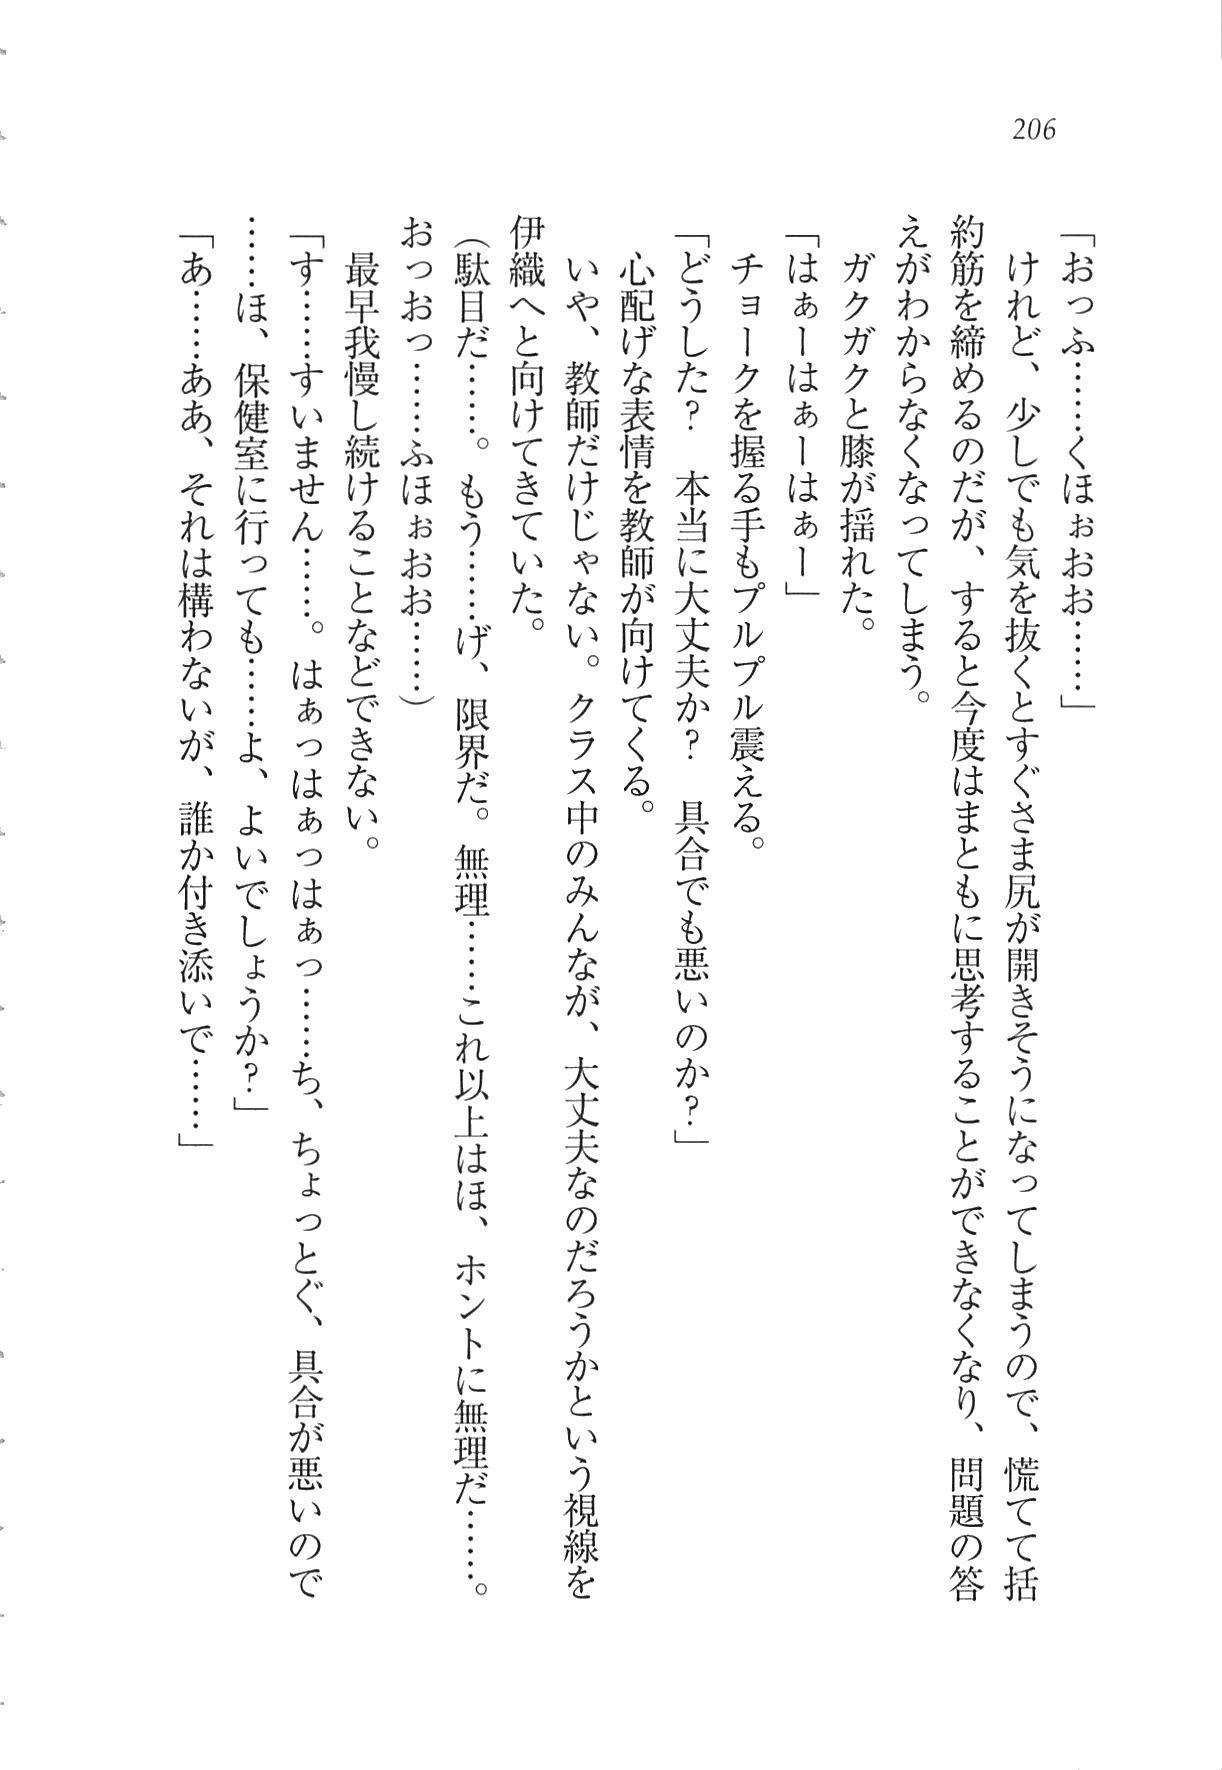 206
「おっふ……くほぉおお……」
けれど、少しでも気を抜くとすぐさま尻が開きそうになってしまうので、慌てて括
約筋を締めるのだが、すると今度はまともに思考することができなくなり、問題の答
えがわからなくなってしまう。
ガクガクと膝が揺れた。
「はぁーはぁーはぁー」
チョークを握る手もプルプル震える。
「どうした？　本当に大丈夫か？　具合でも悪いのか？」
心配げな表情を教師が向けてくる。
いや、教師だけじゃない。クラス中のみんなが、大丈夫なのだろうかという視線を
伊織へと向けてきていた。
（駄目だ……。もう……げ、限界だ。無理……これ以上はほ、ホントに無理だ……。
おっおっ……ふほぉおお……）
最早我慢し続けることなどできない。
「す……すいません……。はぁっはぁっはぁっ……ち、ちょっとぐ、具合が悪いので
……ほ、保健室に行っても……よ、よいでしょうか？」
「あ……ああ、それは構わないが、誰か付き添いで……」